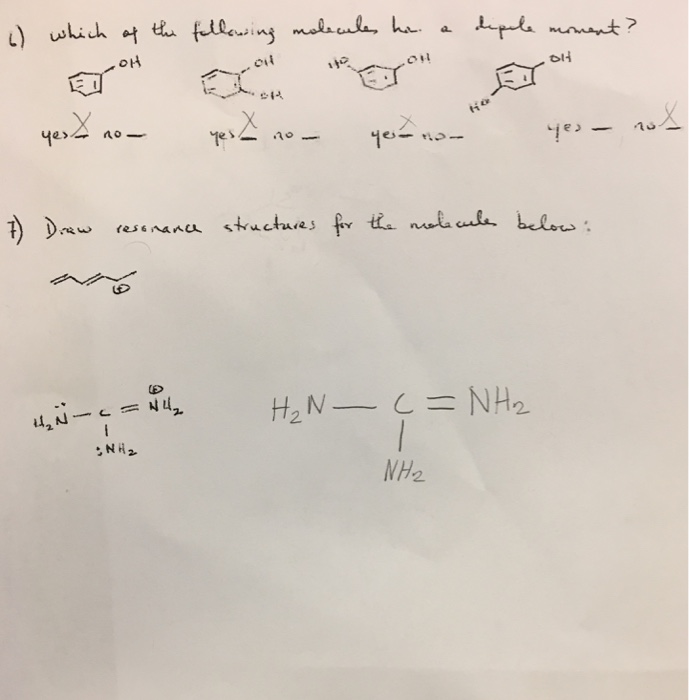 6) which of the following molecules ha. a dipole moment?
OH OH HO OH OH
OH HO
yes X no — yes X no — yes X no — yes — no X
7) Draw resonance structures for the molecules below:
⊕
⊕
H₂N̈ — C = NH₂ H₂N — C = NH₂
:NH₂ NH₂